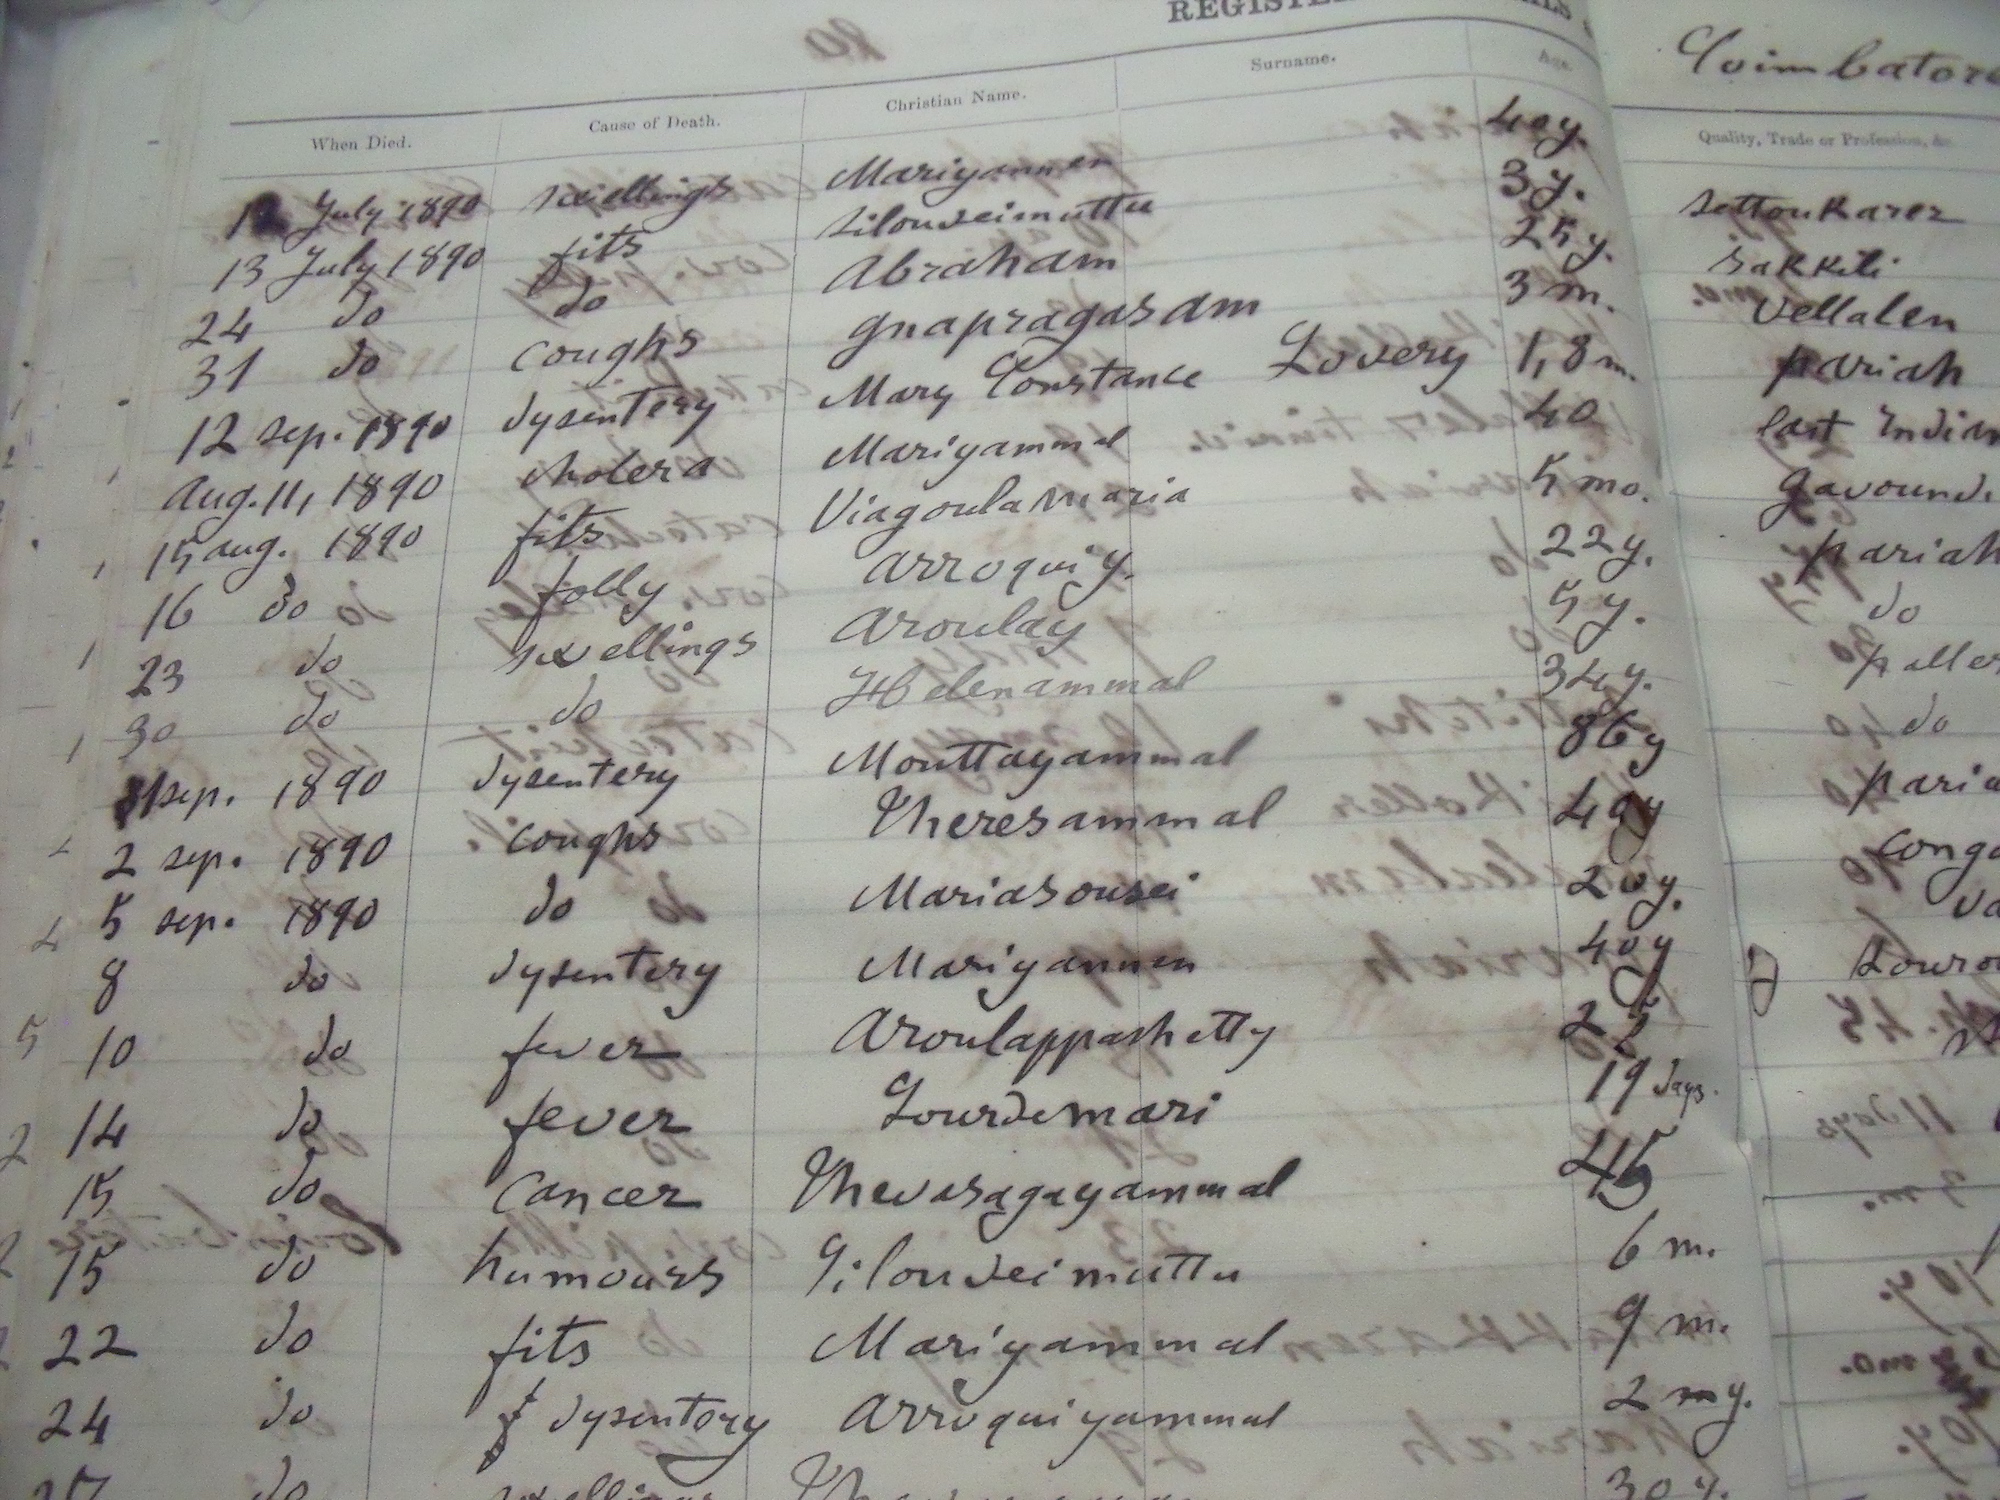 REGISTE
Coimbatore
When Died. Cause of Death. Christian Name. Surname. Age. Quality, Trade or Profession, &c.
12 July 1890 swellings Mariyannen 40 y. Settoukarer
13 July 1890 fits Silouseimuttu 3 y. Sakkili
24 do do Abraham 25 y. Vellalen
31 do coughs gnapragasam 3 m. pariah
12 sep. 1890 dysentery Mary Constance Lovery 1,8 m. East Indian
Aug. 11, 1890 cholera Mariyammal 40 gavound
15 aug. 1890 fits Viagoulamaria 5 mo. pariah
16 do folly Arroquiy. 22 y. do
23 do swellings Aroulay 5 y. paller
30 do do Helenammal 34 y. do
1 sep. 1890 dysentery Mouttayammal 86 y paria
2 sep. 1890 coughs Theresammal 49 y Conga
5 sep. 1890 do Mariasousei 20 y. va
8 do dysentery Mariyannen 40 y
10 do fever Aroulappashetty 25
14 do fever Lourdemari 19 days.
15 do cancer Thevasagayammal 45
15 do humours Silouseimuttu 6 m.
22 do fits Mariyammal 9 m.
24 do dysentory Arroquiyammal 2 y.
27 do swellings 30 y.